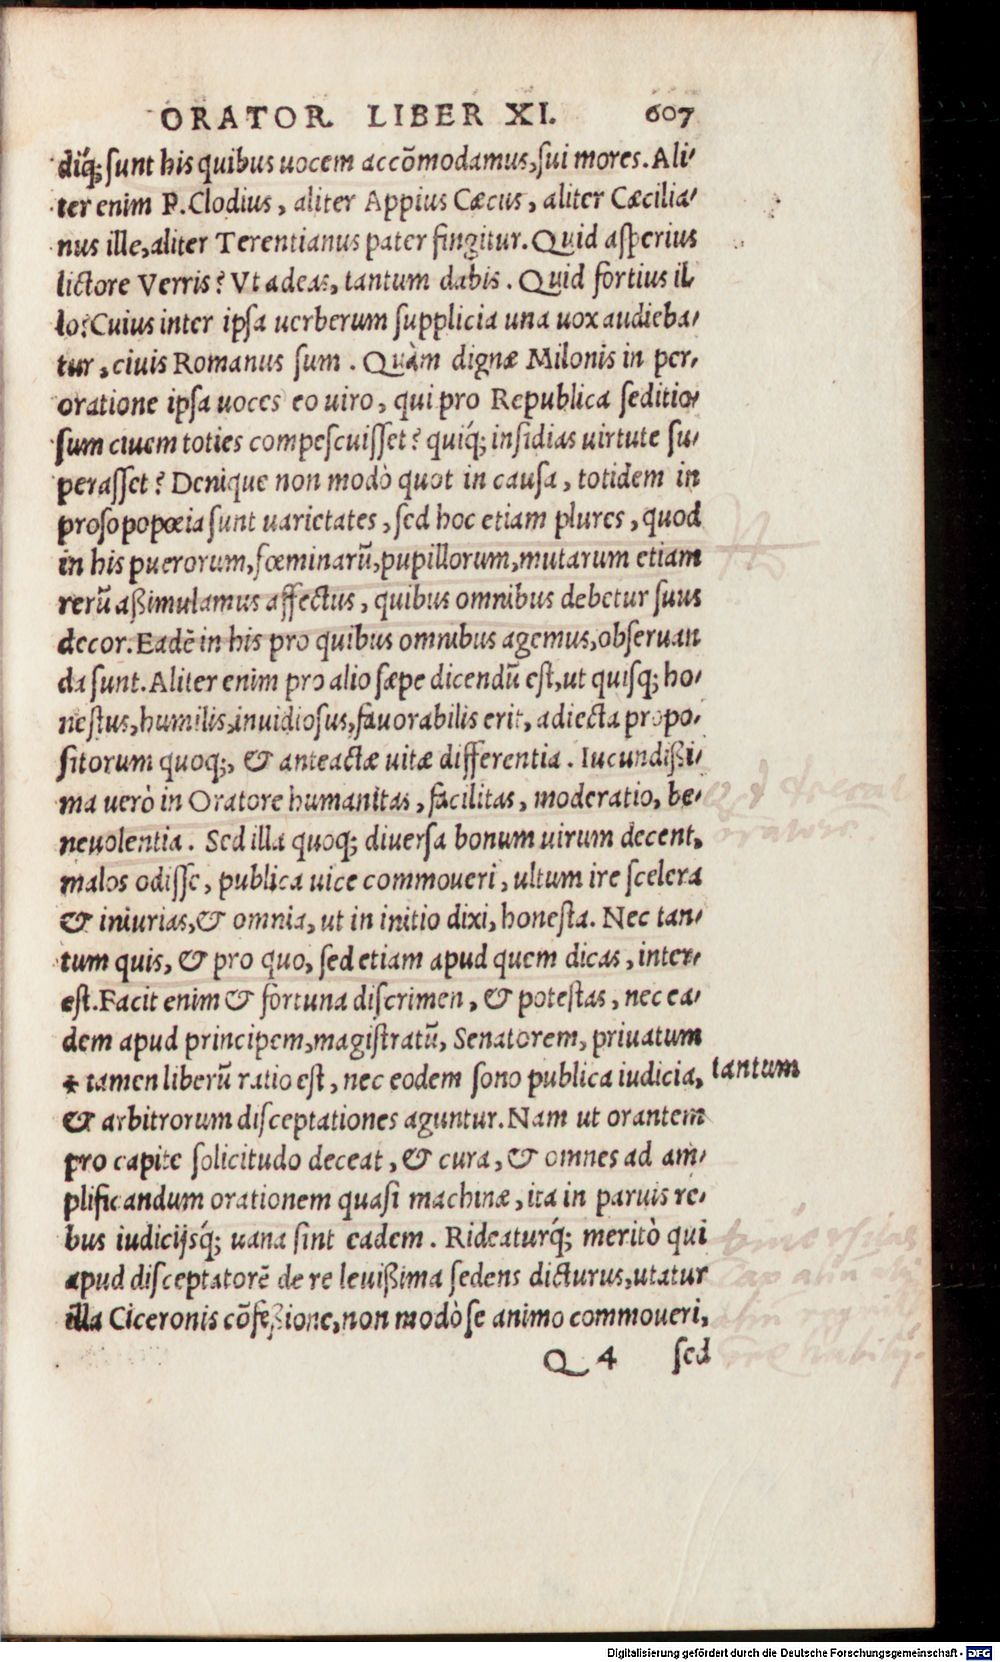 ORATOR LIBER XI. 607
diq́; sunt his quibus uocem accōmodamus, sui mores. Ali-
ter enim P. Clodius, aliter Appius Cæcus, aliter Cæcilia-
nus ille, aliter Terentianus pater fingitur. Quid asperius
lictore Verris? Vt adeas, tantum dabis. Quid fortius il
lo? Cuius inter ipsa uerberum supplicia una uox audieba-
tur, ciuis Romanus sum. Quàm dignæ Milonis in per-
oratione ipsa uoces eo uiro, qui pro Republica seditio-
sum ciuem toties compescuisset? quiq́; insidias uirtute su-
perasset? Denique non modò quot in causa, totidem in
prosopopœia sunt uarietates, sed hoc etiam plures, quod
in his puerorum, fœminarū, pupillorum, mutarum etiam
rerū aßimulamus affectus, quibus omnibus debetur suus
decor. Eadē in his pro quibus omnibus agemus, obseruan
da sunt. Aliter enim pro alio sæpe dicendū est, ut quisq; ho-
nestus, humilis, inuidiosus, fauorabilis erit, adiecta propo-
sitorum quoq;, & anteactæ uitæ differentia. Iucundißi-
ma uerò in Oratore humanitas, facilitas, moderatio, be-
neuolentia. Sed illa quoq; diuersa bonum uirum decent,
malos odisse, publica uice commoueri, ultum ire scelera
& iniurias, & omnia, ut in initio dixi, honesta. Nec tan-
tum quis, & pro quo, sed etiam apud quem dicas, inter-
est. Facit enim & fortuna discrimen, & potestas, nec ea-
dem apud principem, magistratū, Senatorem, priuatum
* tamen liberū ratio est, nec eodem sono publica iudicia, tantum
& arbitrorum disceptationes aguntur. Nam ut orantem
pro capite solicitudo deceat, & cura, & omnes ad am-
plificandum orationem quasi machinæ, ita in paruis re-
bus iudicijsq́; uana sint eadem. Rideaturq́; meritò qui
apud disceptatorē de re leuißima sedens dicturus, utatur
illa Ciceronis cōfeßione, non modò se animo commoueri,
Q 4 sed
oratore
Digitalisierung gefördert durch die Deutsche Forschungsgemeinschaft - DFG